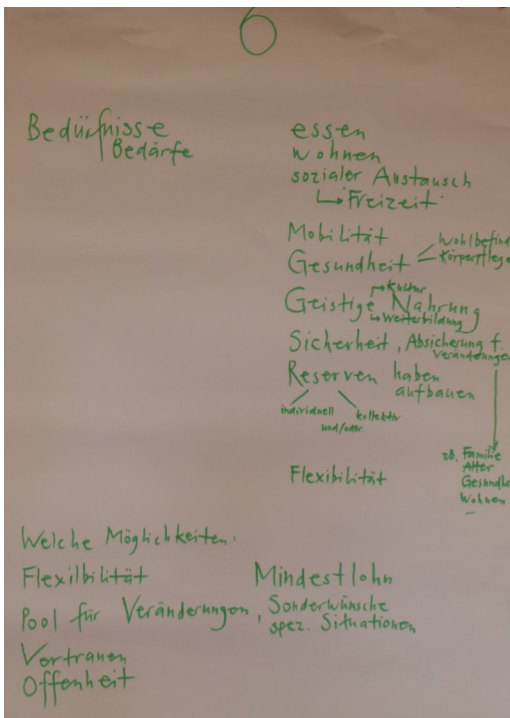 6
Bedürfnisse
Bedärfe
essen
wohnen
sozialer Austausch
↳ Freizeit
Mobilität
Gesundheit
Wohlbefind
Körperpflege
Geistige Nahrung
Kultur
Weiterbildung
Sicherheit, Absicherung f.
Veränderungen
Reserven haben
aufbauen
individuell
und/oder
kollektiv
zB. Familie
Alter
Gesundhe
Wohnen
Flexibilität
Welche Möglichkeiten.
Flexilbilität
Mindestlohn
Pool für Veränderungen, Sonderwünsche
spez. Situationen
Vertrauen
Offenheit